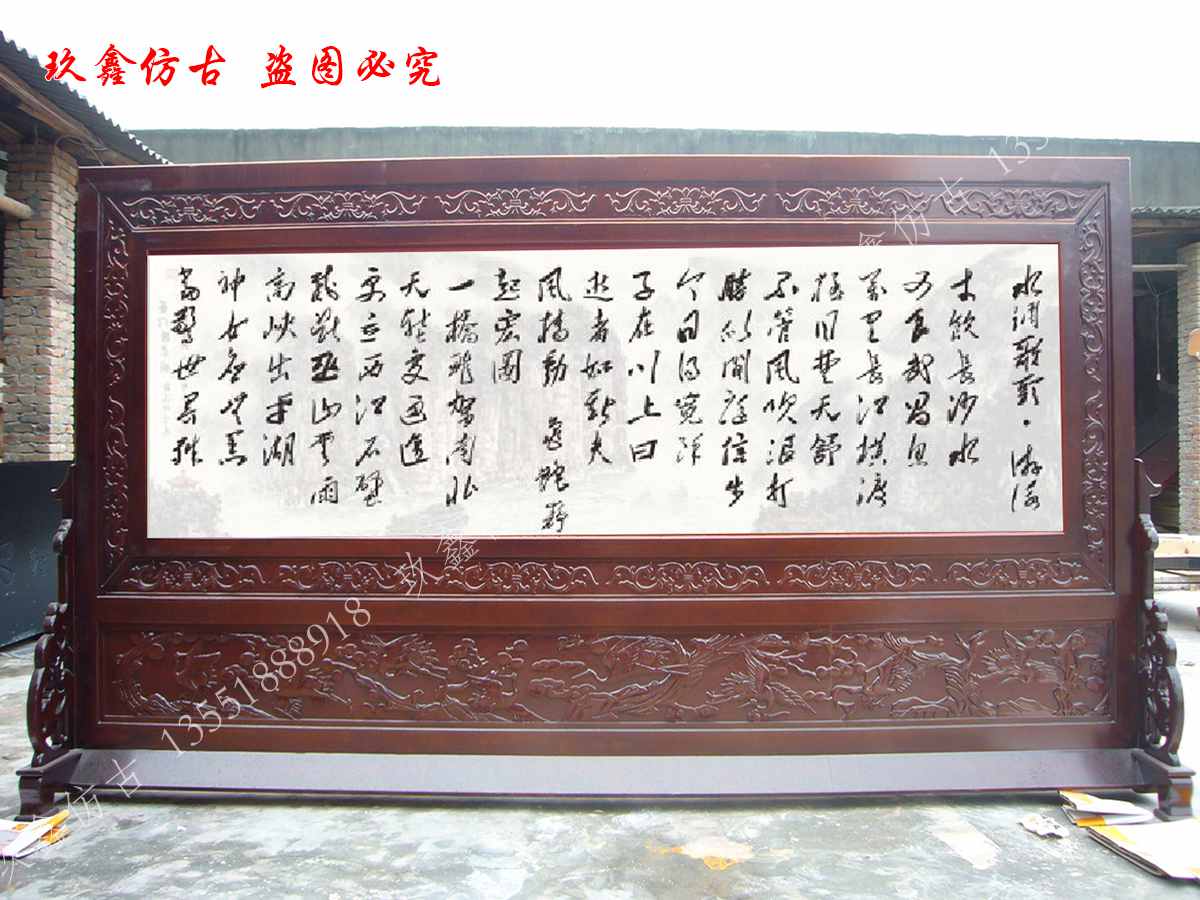 玖鑫仿古 盗图必究
水调歌头·游泳
才饮长沙水
又食武昌鱼
万里长江横渡
极目楚天舒
不管风吹浪打
胜似闲庭信步
今日得宽馀
子在川上曰
逝者如斯夫
风樯动 龟蛇静
起宏图
一桥飞架南北
天堑变通途
更立西江石壁
截断巫山云雨
高峡出平湖
神女应无恙
当惊世界殊
玖鑫仿古 13551888918
玖鑫
鑫仿古 135